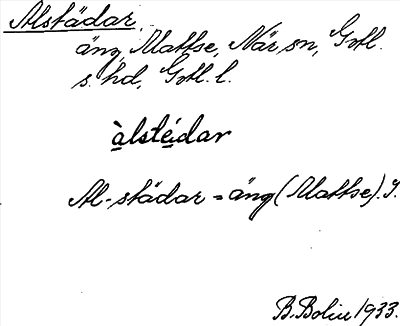 Alstädar,
äng, Mattse, När sn, Gotl.
s. hd, Gotl. l.
àlstédar
Al-städar = äng (Mattse). I.
B. Bolin 1933.